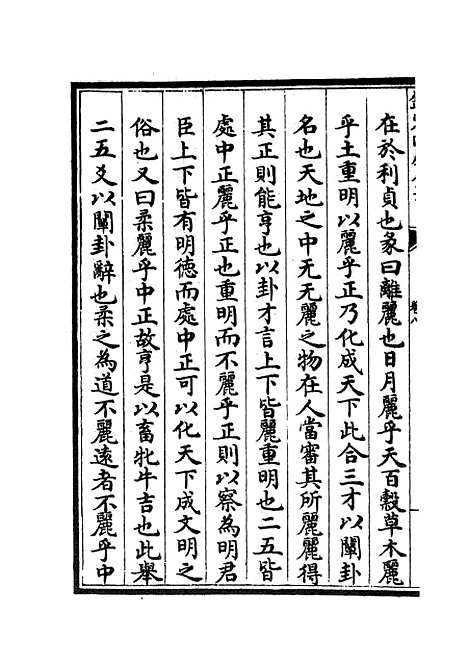 在於利貞也彖曰離麗也日月麗乎天百穀草木麗
乎土重明以麗乎正乃化成天下此合三才以闡卦
名也天地之中无无麗之物在人當審其所麗麗得
其正則能亨也以卦才言上下皆麗重明也二五皆
處中正麗乎正也重明而不麗乎正則以察為明君
臣上下皆有明德而處中正可以化天下成文明之
俗也又曰柔麗乎中正故亨是以畜牝牛吉也此舉
二五爻以闡卦辭也柔之為道不麗遠者不麗乎中